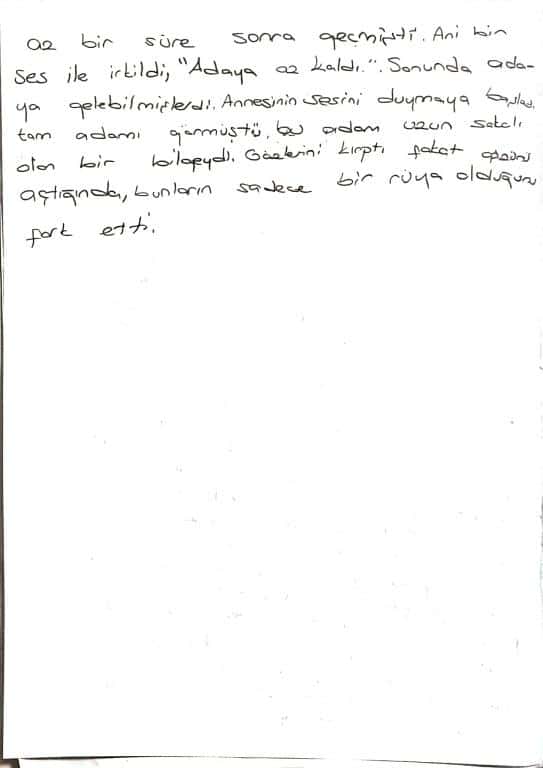 az bir süre sonra geçmişti. Ani bir
ses ile irkildi, "Adaya az kaldı.". Sonunda ada-
ya gelebilmişlerdi. Annesinin sesini duymaya başladı,
tam adamı görmüştü, bu adam uzun sakallı
olan bir bilgeydi. Gözlerini kırptı fakat gözünü
açtığında, bunların sadece bir rüya olduğunu
fark etti.